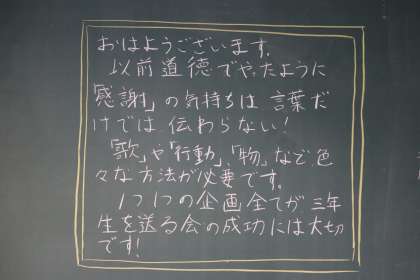 おはようございます。
以前道徳でやったように
「感謝」の気持ちは言葉だ
けでは伝わらない!
「歌」や「行動」、「物」など色
々な方法が必要です。
1つ1つの企画全てが三年
生を送る会の成功には大切
です!